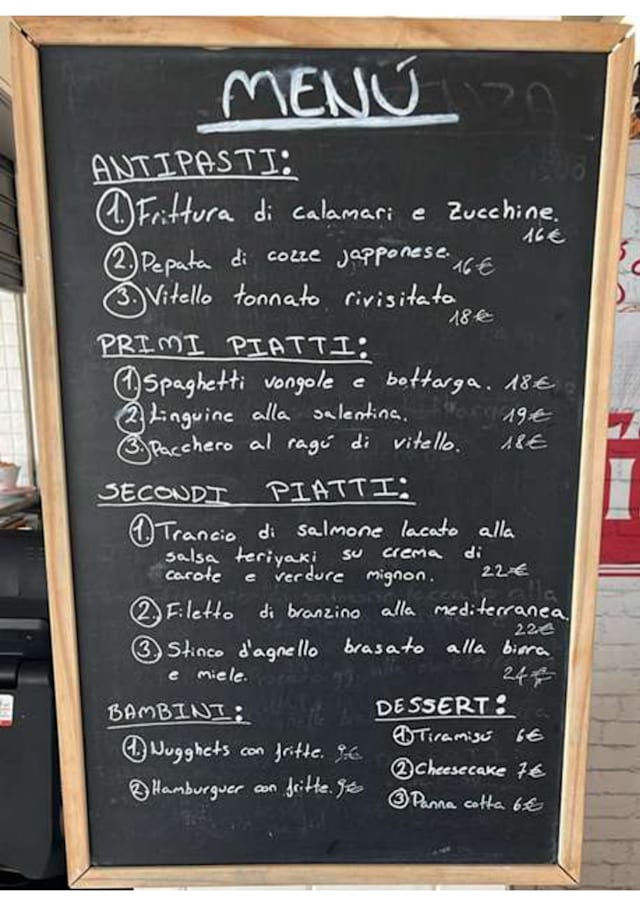 MENÚ
ANTIPASTI:
1. Frittura di calamari e zucchine.
16€
2. Pepata di cozze japponese. 16€
3. Vitello tonnato rivisitato
18€
PRIMI PIATTI:
1. Spaghetti vongole e bottarga. 18€
2. Linguine alla salentina. 19€
3. Pacchero al ragú di vitello. 18€
SECONDI PIATTI:
1. Trancio di salmone lacato alla
salsa teriyaki su crema di
carote e verdure mignon. 22€
2. Filetto di branzino alla mediterranea.
22€
3. Stinco d'agnello brasato alla birra
e miele. 24€
BAMBINI:
1. Nugghets con fritte. 9€
2. Hamburguer con fritte. 9€
DESSERT:
1 Tiramisú 6€
2 Cheesecake 7€
3 Panna cotta 6€